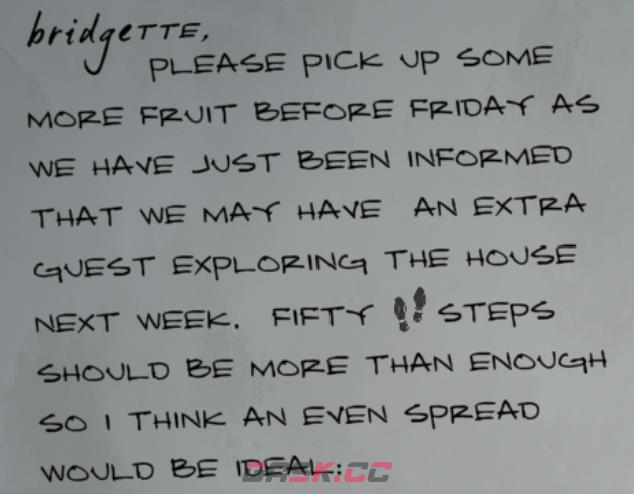 bridgeTTE,
PLEASE PICK UP SOME
MORE FRUIT BEFORE FRIDAY AS
WE HAVE JUST BEEN INFORMED
THAT WE MAY HAVE AN EXTRA
GUEST EXPLORING THE HOUSE
NEXT WEEK. FIFTY STEPS
SHOULD BE MORE THAN ENOUGH
SO I THINK AN EVEN SPREAD
WOULD BE IDEAL:
DASK.CC